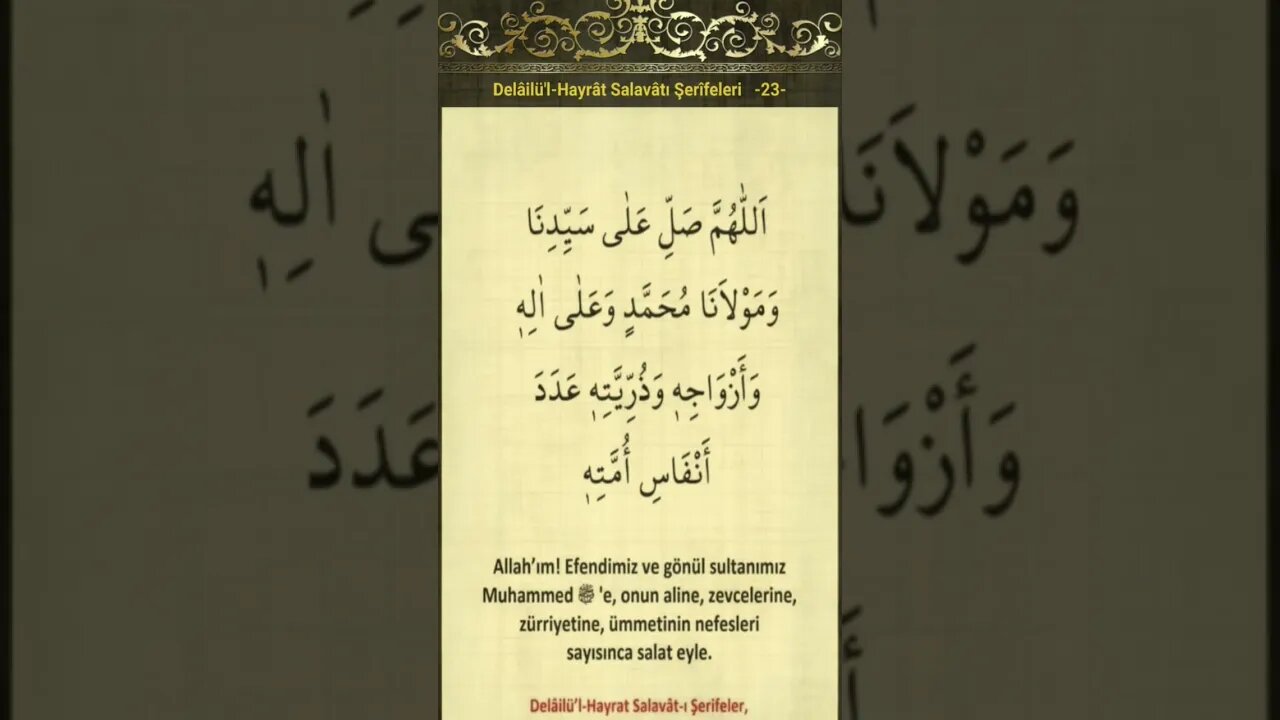 Delâilü'l-Hayrât Salavâtı Şerîfeleri -23-
اَللّٰهُمَّ صَلِّ عَلٰى سَيِّدِنَا
وَمَوْلَانَا مُحَمَّدٍ وَعَلٰى اٰلِهٖ
وَأَزْوَاجِهٖ وَذُرِّيَّتِهٖ عَدَدَ
أَنْفَاسِ أُمَّتِهٖ
Allah’ım! Efendimiz ve gönül sultanımız
Muhammed ﷺ 'e, onun aline, zevcelerine,
zürriyetine, ümmetinin nefesleri
sayısınca salat eyle.
Delâilü’l-Hayrat Salavât-ı Şerifeler,